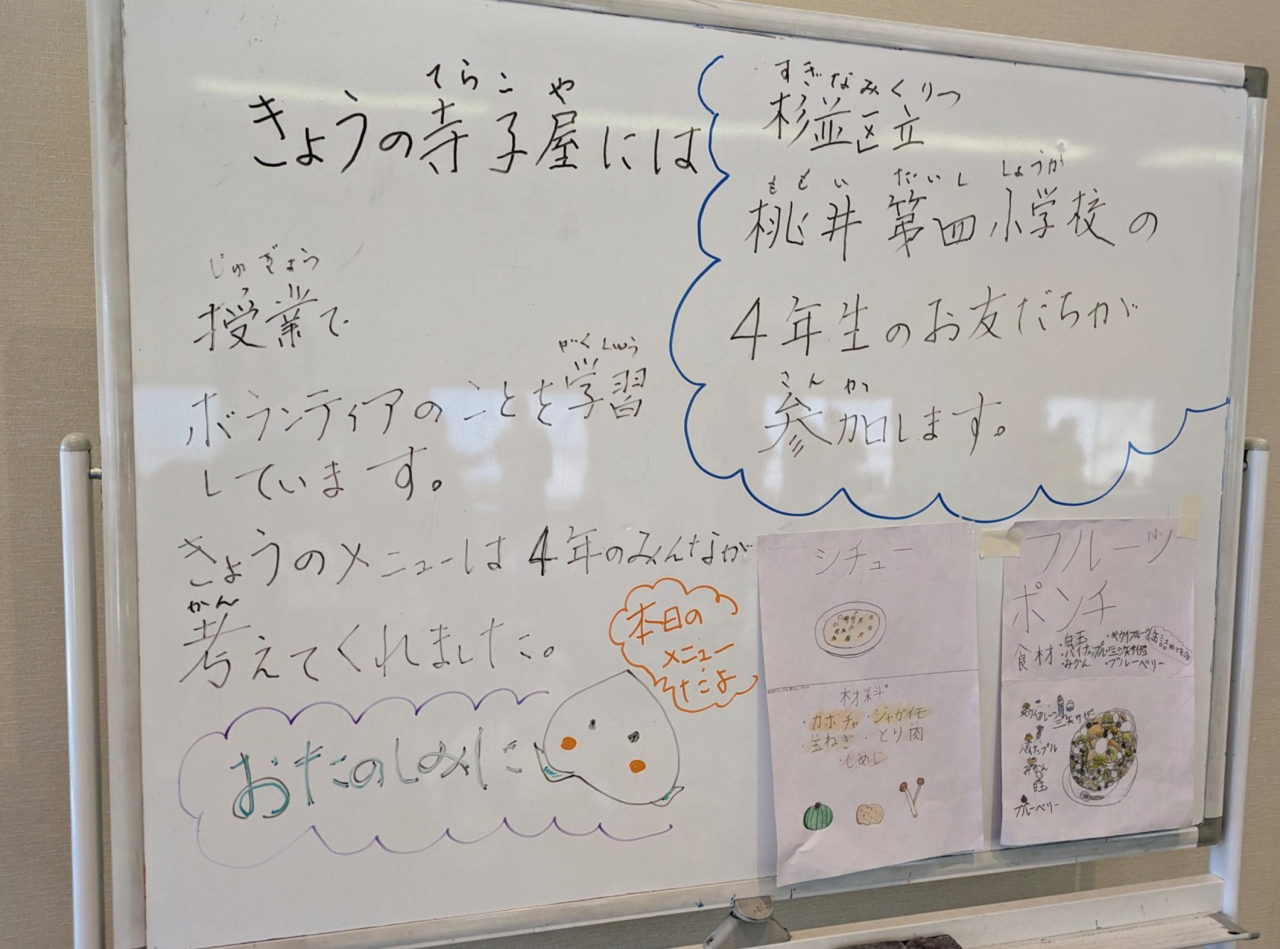 てらこや
きょうの寺子屋には
すぎなみくりつ
杉並区立
ももい だいし しょうが
桃井第四小学校の
4年生のお友だちが
さんか
参加します。
じゅぎょう
授業で
がくしゅう
ボランティアのことを学習
しています。
きょうのメニューは4年のみんなが
かん
考えてくれました。
本日の
メニュー
だよ
おたのしみに
シチュー
材料
・カボチャ ・ジャガイモ
・玉ねぎ ・とり肉
・しめじ
フルーツ
ポンチ
食材
・白玉 ・キウイフルーツ
・パイナップル ・三ツ矢サイダー
・みかん ・ブルーベリー
パイナップル
みかん
白玉
ブルーベリー